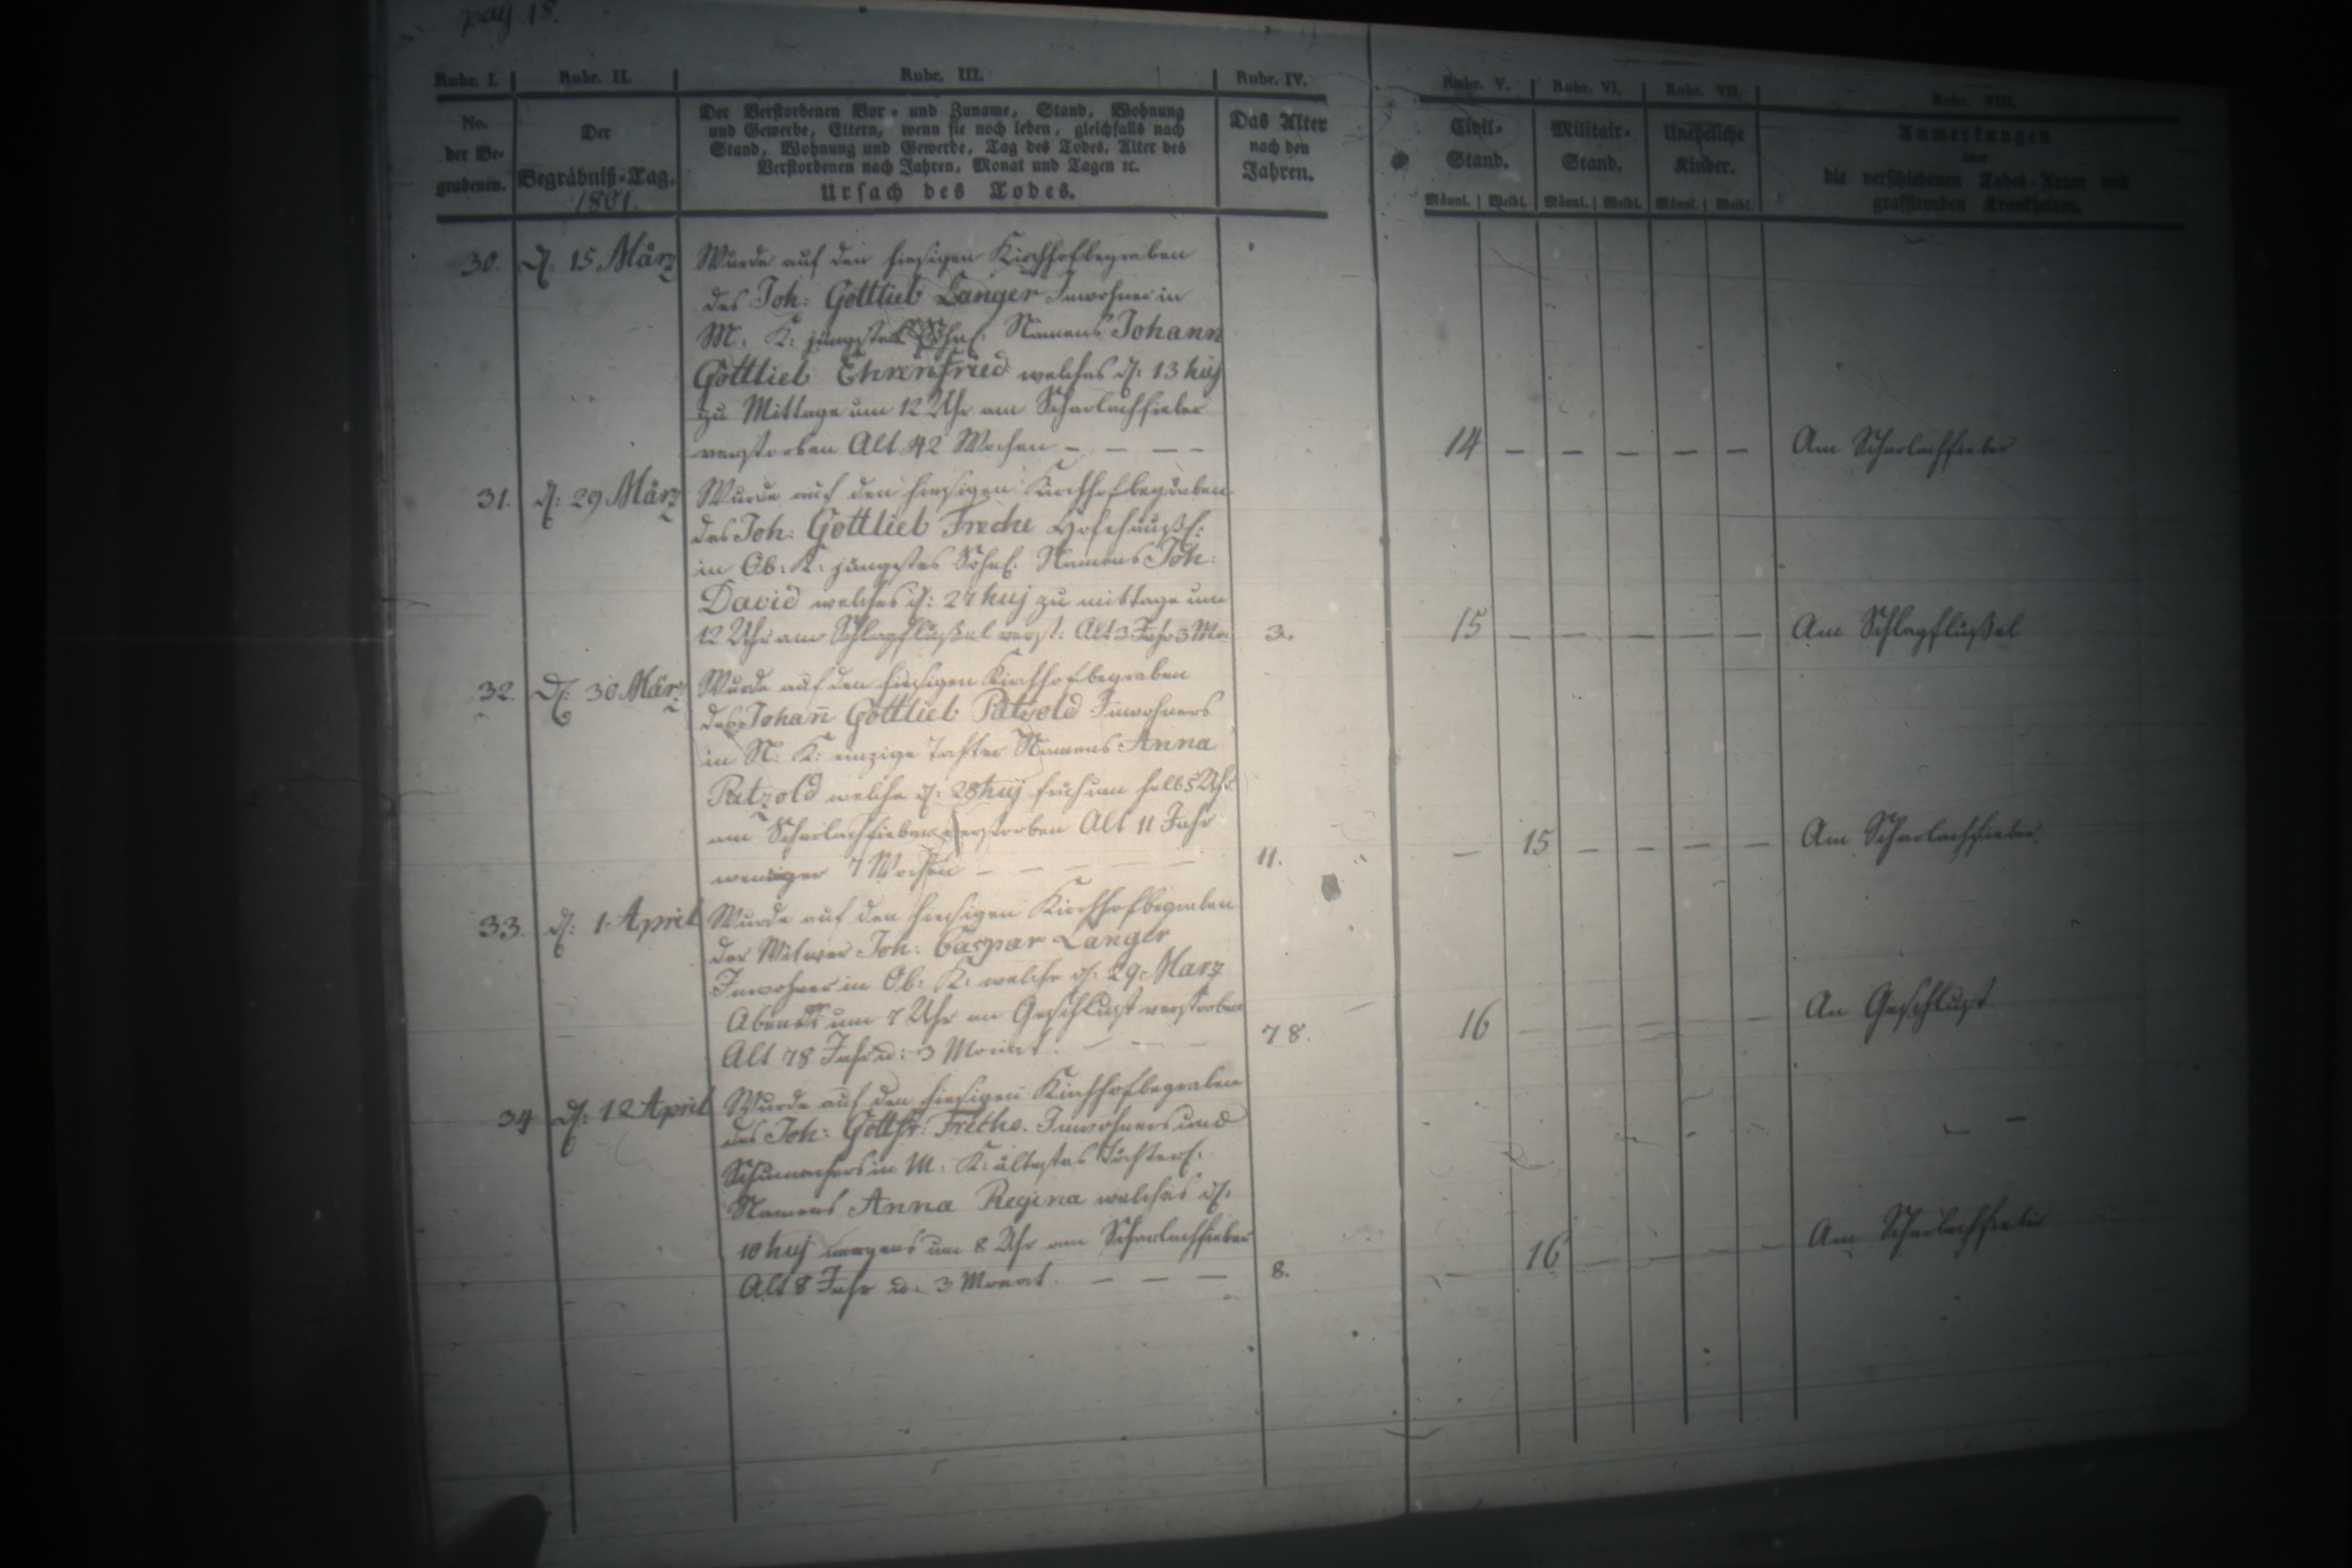 pag 18.
Rubr. I. Rubr. II. Rubr. III. Rubr. IV. Rubr. V. Rubr. VI. Rubr. VII. Rubr. VIII.
No.
der Be-
grabenen.
Der
Begräbniß-Tag.
1801.
Der Verstorbenen Vor- und Zuname, Stand, Wohnung
und Gewerbe, Eltern, wenn sie noch leben, gleichfalls nach
Stand, Wohnung und Gewerbe, Tag des Todes, Alter des
Verstorbenen nach Jahren, Monat und Tagen ꝛc.
Ursach des Todes.
Das Alter
nach den
Jahren.
Civil-
Stand.
Männl. Weibl.
Militair-
Stand.
Männl. Weibl.
Uneheliche
Kinder.
Männl. Weibl.
Anmerkungen
über
die verschiedenen Todes-Arten und
grassirenden Krankheiten.
30. d. 15 März Wurde auf den hiesigen Kirchhof begraben
des Joh: Gottlieb Langer Inwohner in
M. K: jüngstes Söhnl: Namens Johann
Gottlieb Ehrenfried welches d. 13 huj
zu Mittage um 12 Uhr am Scharlachfieber
verstorben Alt 42 Wochen – – – – 14 – – – – – Am Scharlachfieber
31. d: 29 März Wurde auf den hiesigen Kirchhof begraben
des Joh: Gottlieb Freche
in Ob: K: jüngstes Söhnl: Namens Joh:
David welches d: 27 huj zu mittage um
12 Uhr am Schlagflüßel verst: Alt 3 Jahr 3 Mo: 3. 15 – – – – – Am Schlagflüßel
32. d: 30 März Wurde auf den hiesigen Kirchhof begraben
des Johan̄ Gottlieb Patzold Inwohners
in N: K: einzige Tochter Namens Anna
Patzold welche d: 28 huj früh um halb 5 Uhr
am Scharlachfieber verstorben Alt 11 Jahr
weniger 7 Wochen – – – – – 11. – 15 – – – – Am Scharlachfieber
33. d: 1. April Wurde auf den hiesigen Kirchhof begraben
der Witwer Joh: Caspar Langer
Inwohner in Ob: K: welche d. 29. Marz
Abends um 7 Uhr an verstorben
Alt 78 Jahr u: 3 Monat. – – – 78. 16 – – – – – An
34 d: 12 April Wurde auf den hiesigen Kirchhof begraben
des Joh: Gottfr: Frethe. Inwohners und
Schumachers in M: K: ältestes Töchterl:
Namens Anna Regina welches d:
10 huj morgens um 8 Uhr am Scharlachfieber
Alt 8 Jahr u: 3 Monat. – – – 8. – 16 – – – – Am Scharlachfieber